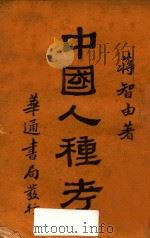 蔣智由著
中國人種考
華通書局發行